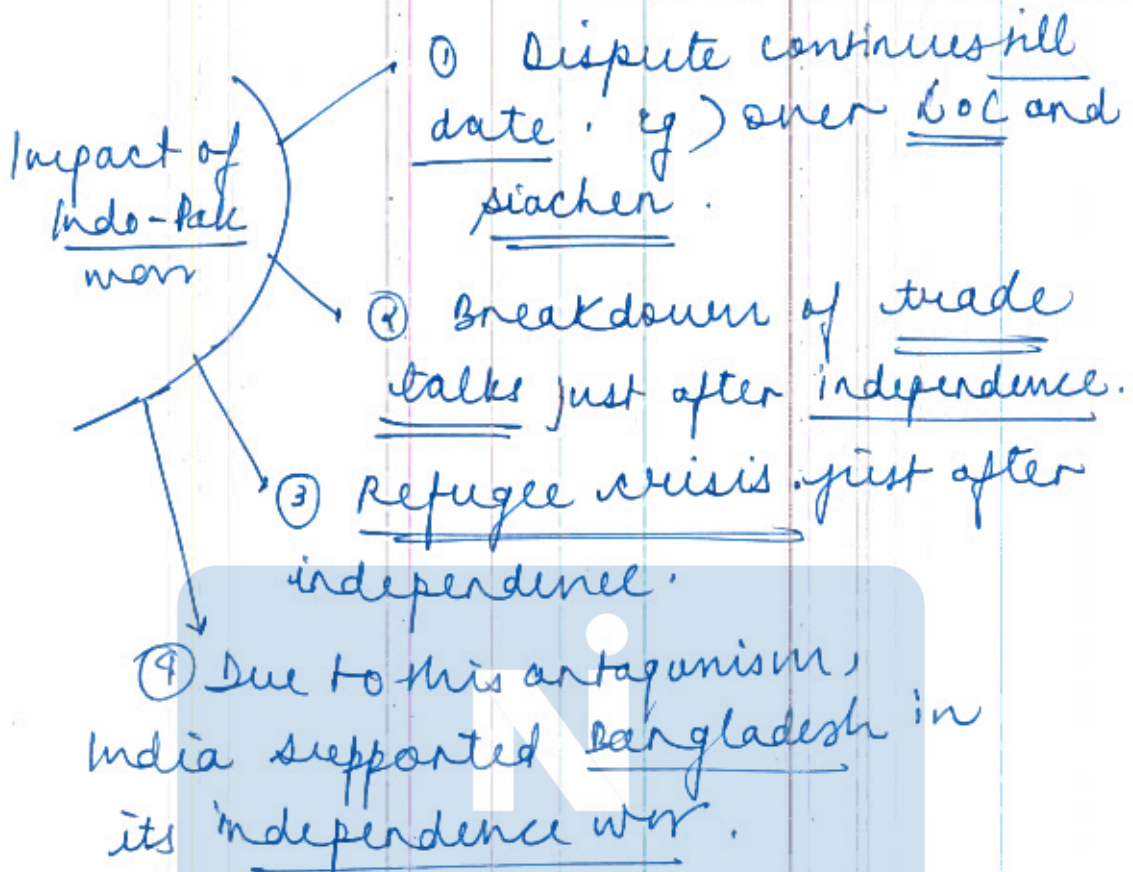 Impact of
Indo-Pak
war
① Dispute continues till
date. eg) over LoC and
siachen.
② Breakdown of trade
talks just after independence.
③ Refugee crisis just after
independence.
④ Due to this antagonism,
India supported Bangladesh in
its independence war.